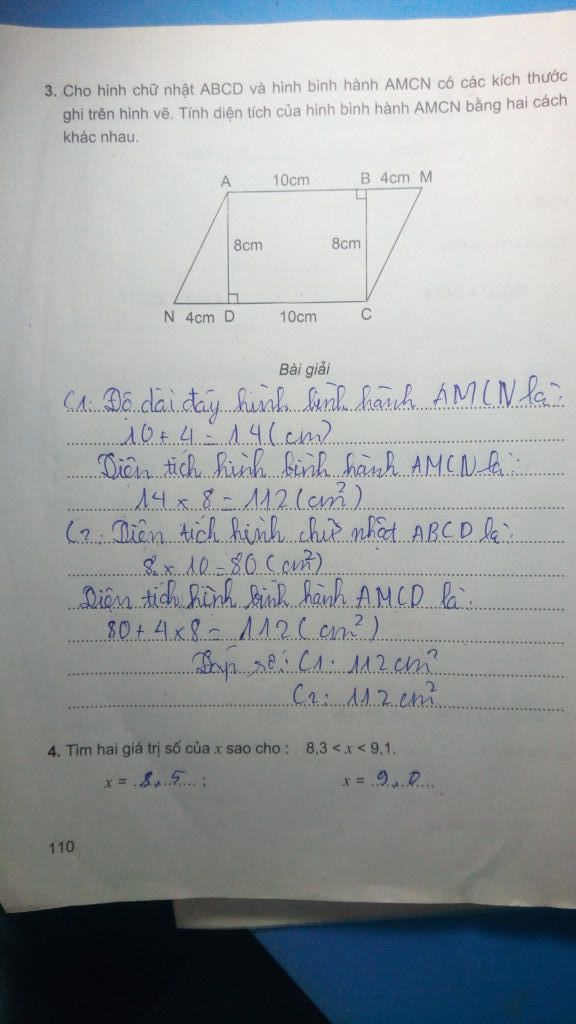 3. Cho hình chữ nhật ABCD và hình bình hành AMCN có các kích thước
ghi trên hình vẽ. Tính diện tích của hình bình hành AMCN bằng hai cách
khác nhau.
A 10cm B 4cm M
8cm 8cm
N 4cm D 10cm C
Bài giải
C1. Độ dài đáy hình bình hành AMCN là:
10 + 4 = 14 (cm)
Diện tích hình bình hành AMCN là:
14 x 8 = 112 (cm²)
C2: Diện tích hình chữ nhật ABCD là:
8 x 10 = 80 (cm²)
Diện tích hình bình hành AMCD là:
80 + 4 x 8 = 112 (cm²)
Đáp số: C1. 112 cm²
C2: 112 cm²
4. Tìm hai giá trị số của x sao cho : 8,3 < x < 9,1.
x = 8,5 ; x = 9,0
110